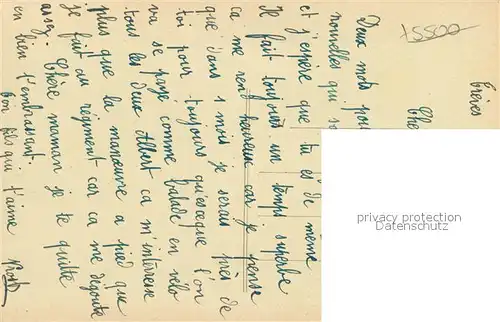 Trèves
Che
Deux mots pou
nouvelles qui so
et j'espère que tu es de même
Il fait toujours un temps superbe
ça me rend heureux car je pense
que dans 1 mois je serais près de
toi pour toujours qu'esceque l'on
va se payé comme balade en vélo
tous les deux Albert ça m'intéresse
plus que la manœuvre a pied que
je fait au régiment car ça me dégoute
assez. Chère maman je te quitte
en bien t'embrassant.
Ton fils qui t'aime
15500
privacy protection